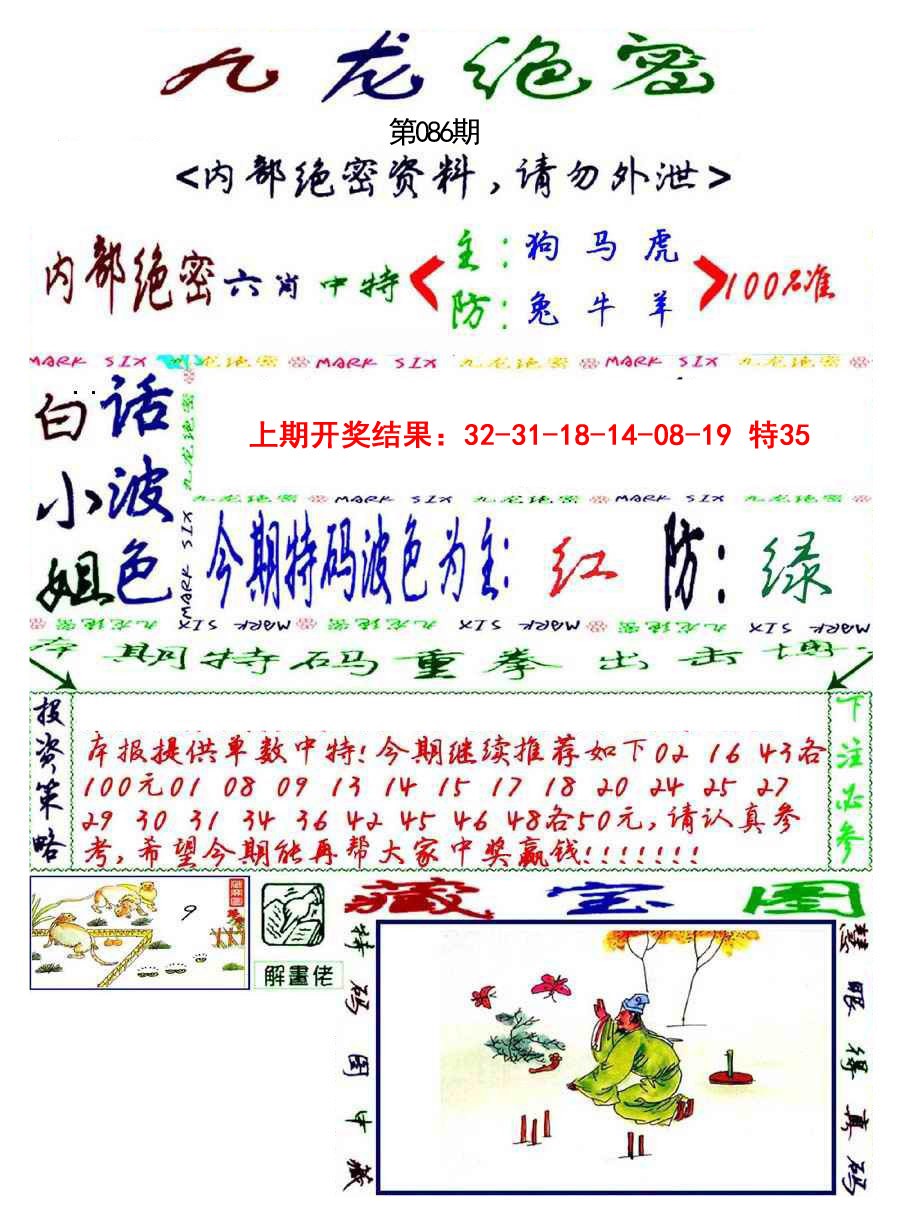 九龙绝密
第086期
<内部绝密资料，请勿外泄>
内部绝密六肖中特
主：狗 马 虎
防：兔 牛 羊
100%准
MARK SIX 九龙绝密 MARK SIX 九龙绝密 MARK SIX 九龙绝密
白小姐
话波色
九龙绝密
MARK SIX
上期开奖结果：32-31-18-14-08-19 特35
九龙绝密 MARK SIX 九龙绝密 MARK SIX 九龙绝密
今期特码波色为主：红 防：绿
九龙绝密 MARK SIX 九龙绝密 MARK SIX 九龙绝密 MARK SIX
本期特码重拳出击
投资策略
本报提供单数中特！今期继续推荐如下02 16 43各
100元01 08 09 13 14 15 17 18 20 24 25 27
29 30 31 34 36 42 45 46 48各50元，请认真参
考，希望今期能再帮大家中奖赢钱！！！！！！！
下注必参
9
解畫佬
藏宝图
特码图中藏
慧眼得真码